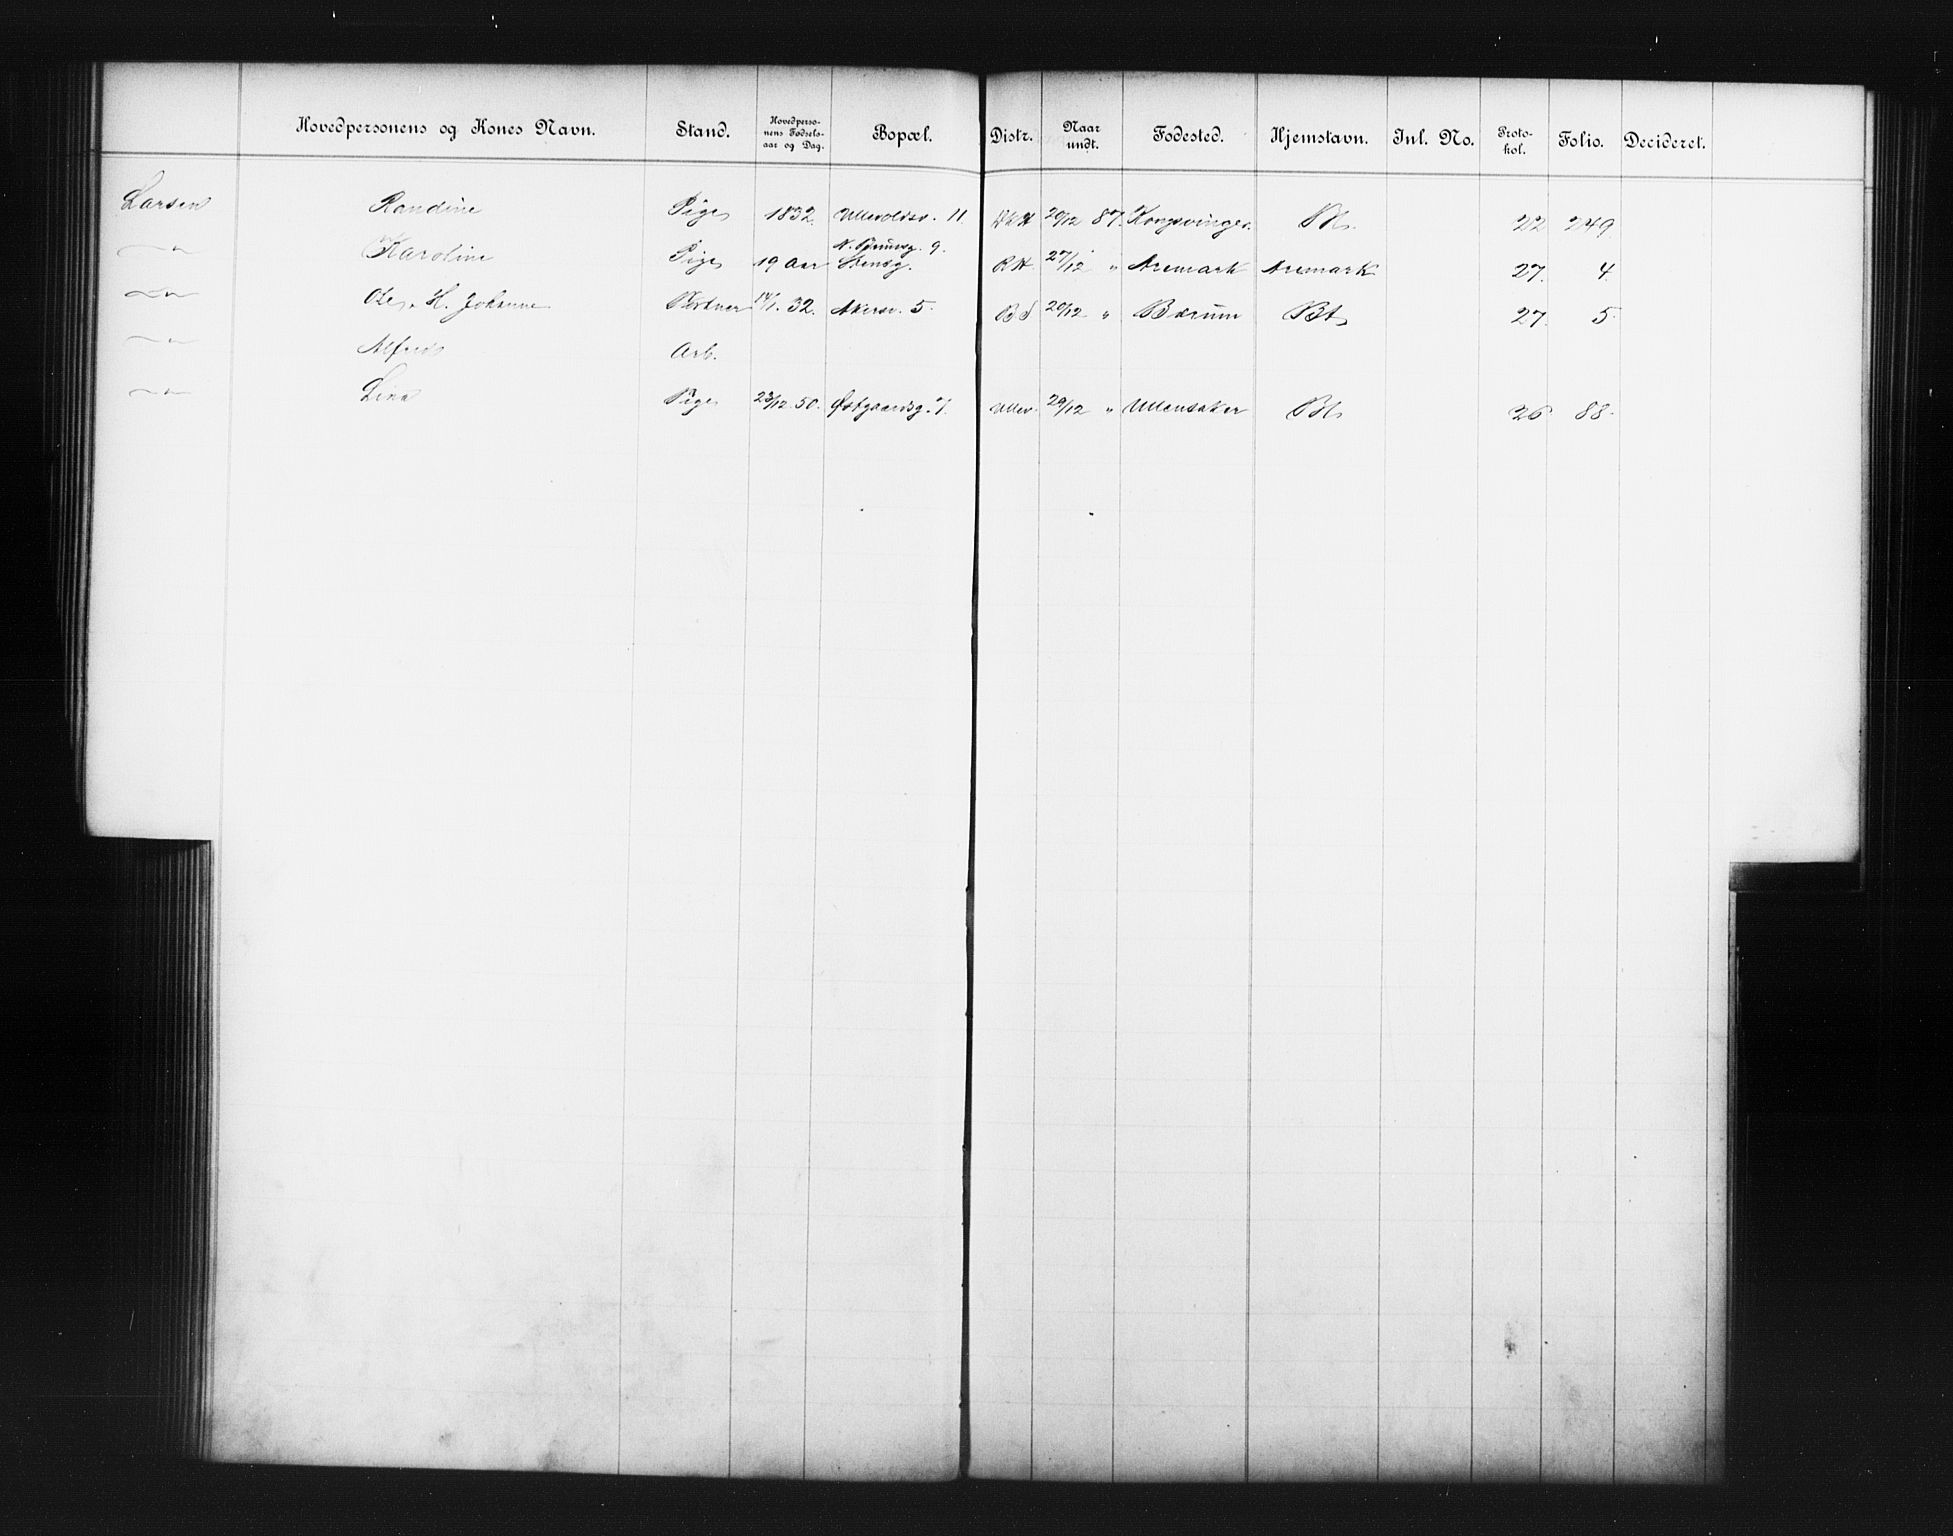 Hovedpersonens og Kones Navn. Stand. Hovedpersonens Fødselsaar og Dag. Bopæl. Distr. Naar undt. Fødested. Hjemstavn. Inl. No. Protokol. Folio. Decideret.
Larsen Randine Pige 1832 Ullevoldsv. 11 20/12 87. Kongsvinger 22 249
N. Brunsg. 9.
— " — Karoline Pige 19 Aar Stensg. RH 27/12 " Aremark Aremark 27. 4.
— " — Ole, H. Johanne Portner 14/1. 32. Akersv. 5. 20/12 " Bærum Bt 27. 5.
— " — Alfred Arb.
— " — Lina Pige 23/12 50. Østgaardsg. 7. Ullev. 29/12 " Ullensaker Bt 26 88.